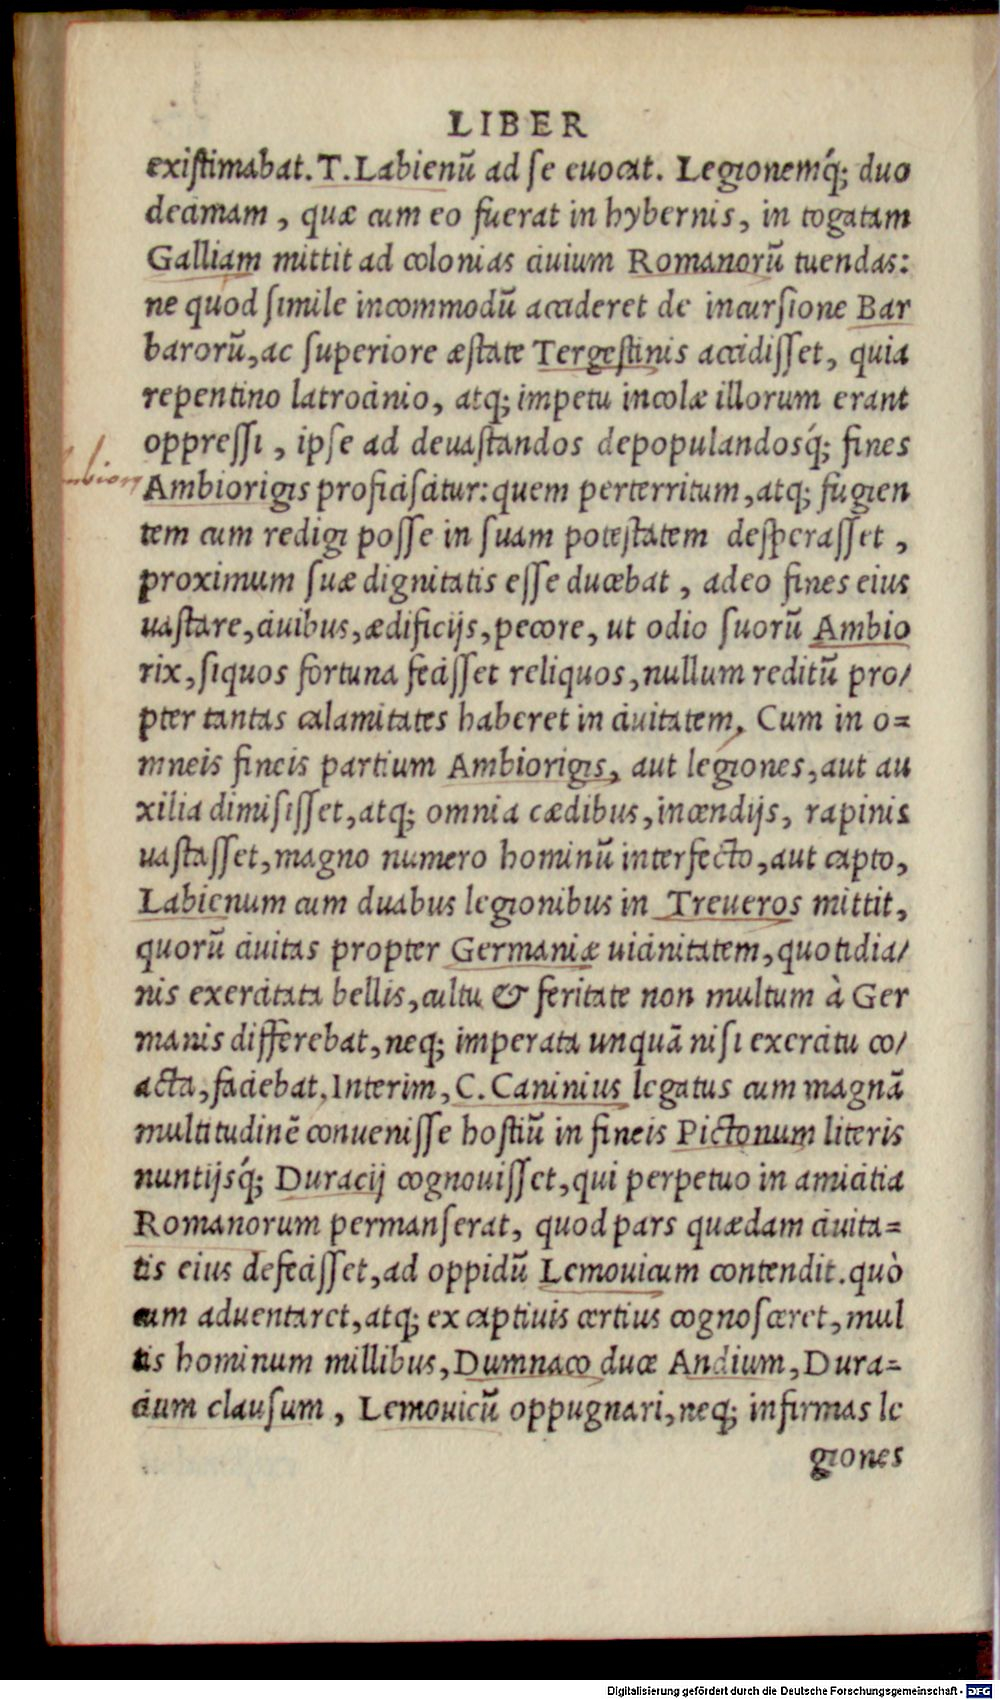 LIBER
existimabat. T. Labienũ ad se euocat. Legionemq́; duo
decimam, quæ cum eo fuerat in hybernis, in togatam
Galliam mittit ad colonias ciuium Romanorũ tuendas:
ne quod simile incommodũ accideret de incursione Bar
barorũ, ac superiore æstate Tergestinis accidisset, quia
repentino latrocinio, atq; impetu incolæ illorum erant
oppressi, ipse ad deuastandos depopulandosq́; fines
Ambiorigis proficiscitur: quem perterritum, atq; fugien
tem cum redigi posse in suam potestatem desperasset,
proximum suæ dignitatis esse ducebat, adeo fines eius
uastare, ciuibus, ædificijs, pecore, ut odio suorũ Ambio
rix, siquos fortuna fecisset reliquos, nullum reditũ pro/
pter tantas calamitates haberet in ciuitatem. Cum in o=
mneis fineis partium Ambiorigis, aut legiones, aut au
xilia dimisisset, atq; omnia cædibus, incendijs, rapinis
uastasset, magno numero hominũ interfecto, aut capto,
Labienum cum duabus legionibus in Treueros mittit,
quorũ ciuitas propter Germaniæ uicinitatem, quotidia/
nis exercitata bellis, cultu & feritate non multum à Ger
manis differebat, neq; imperata unquã nisi exercitu co/
acta, faciebat. Interim, C. Caninius legatus cum magnã
multitudinẽ conuenisse hostiũ in fineis Pictonum literis
nuntijsq́; Duracij cognouisset, qui perpetuo in amicitia
Romanorum permanserat, quod pars quædam ciuita=
tis eius defecisset, ad oppidũ Lemouicum contendit. quò
cum aduentaret, atq; ex captiuis certius cognosceret, mul
tis hominum millibus, Dumnaco duce Andium, Dura=
cium clausum, Lemouicũ oppugnari, neq; infirmas le
giones
Digitalisierung gefördert durch die Deutsche Forschungsgemeinschaft - DFG